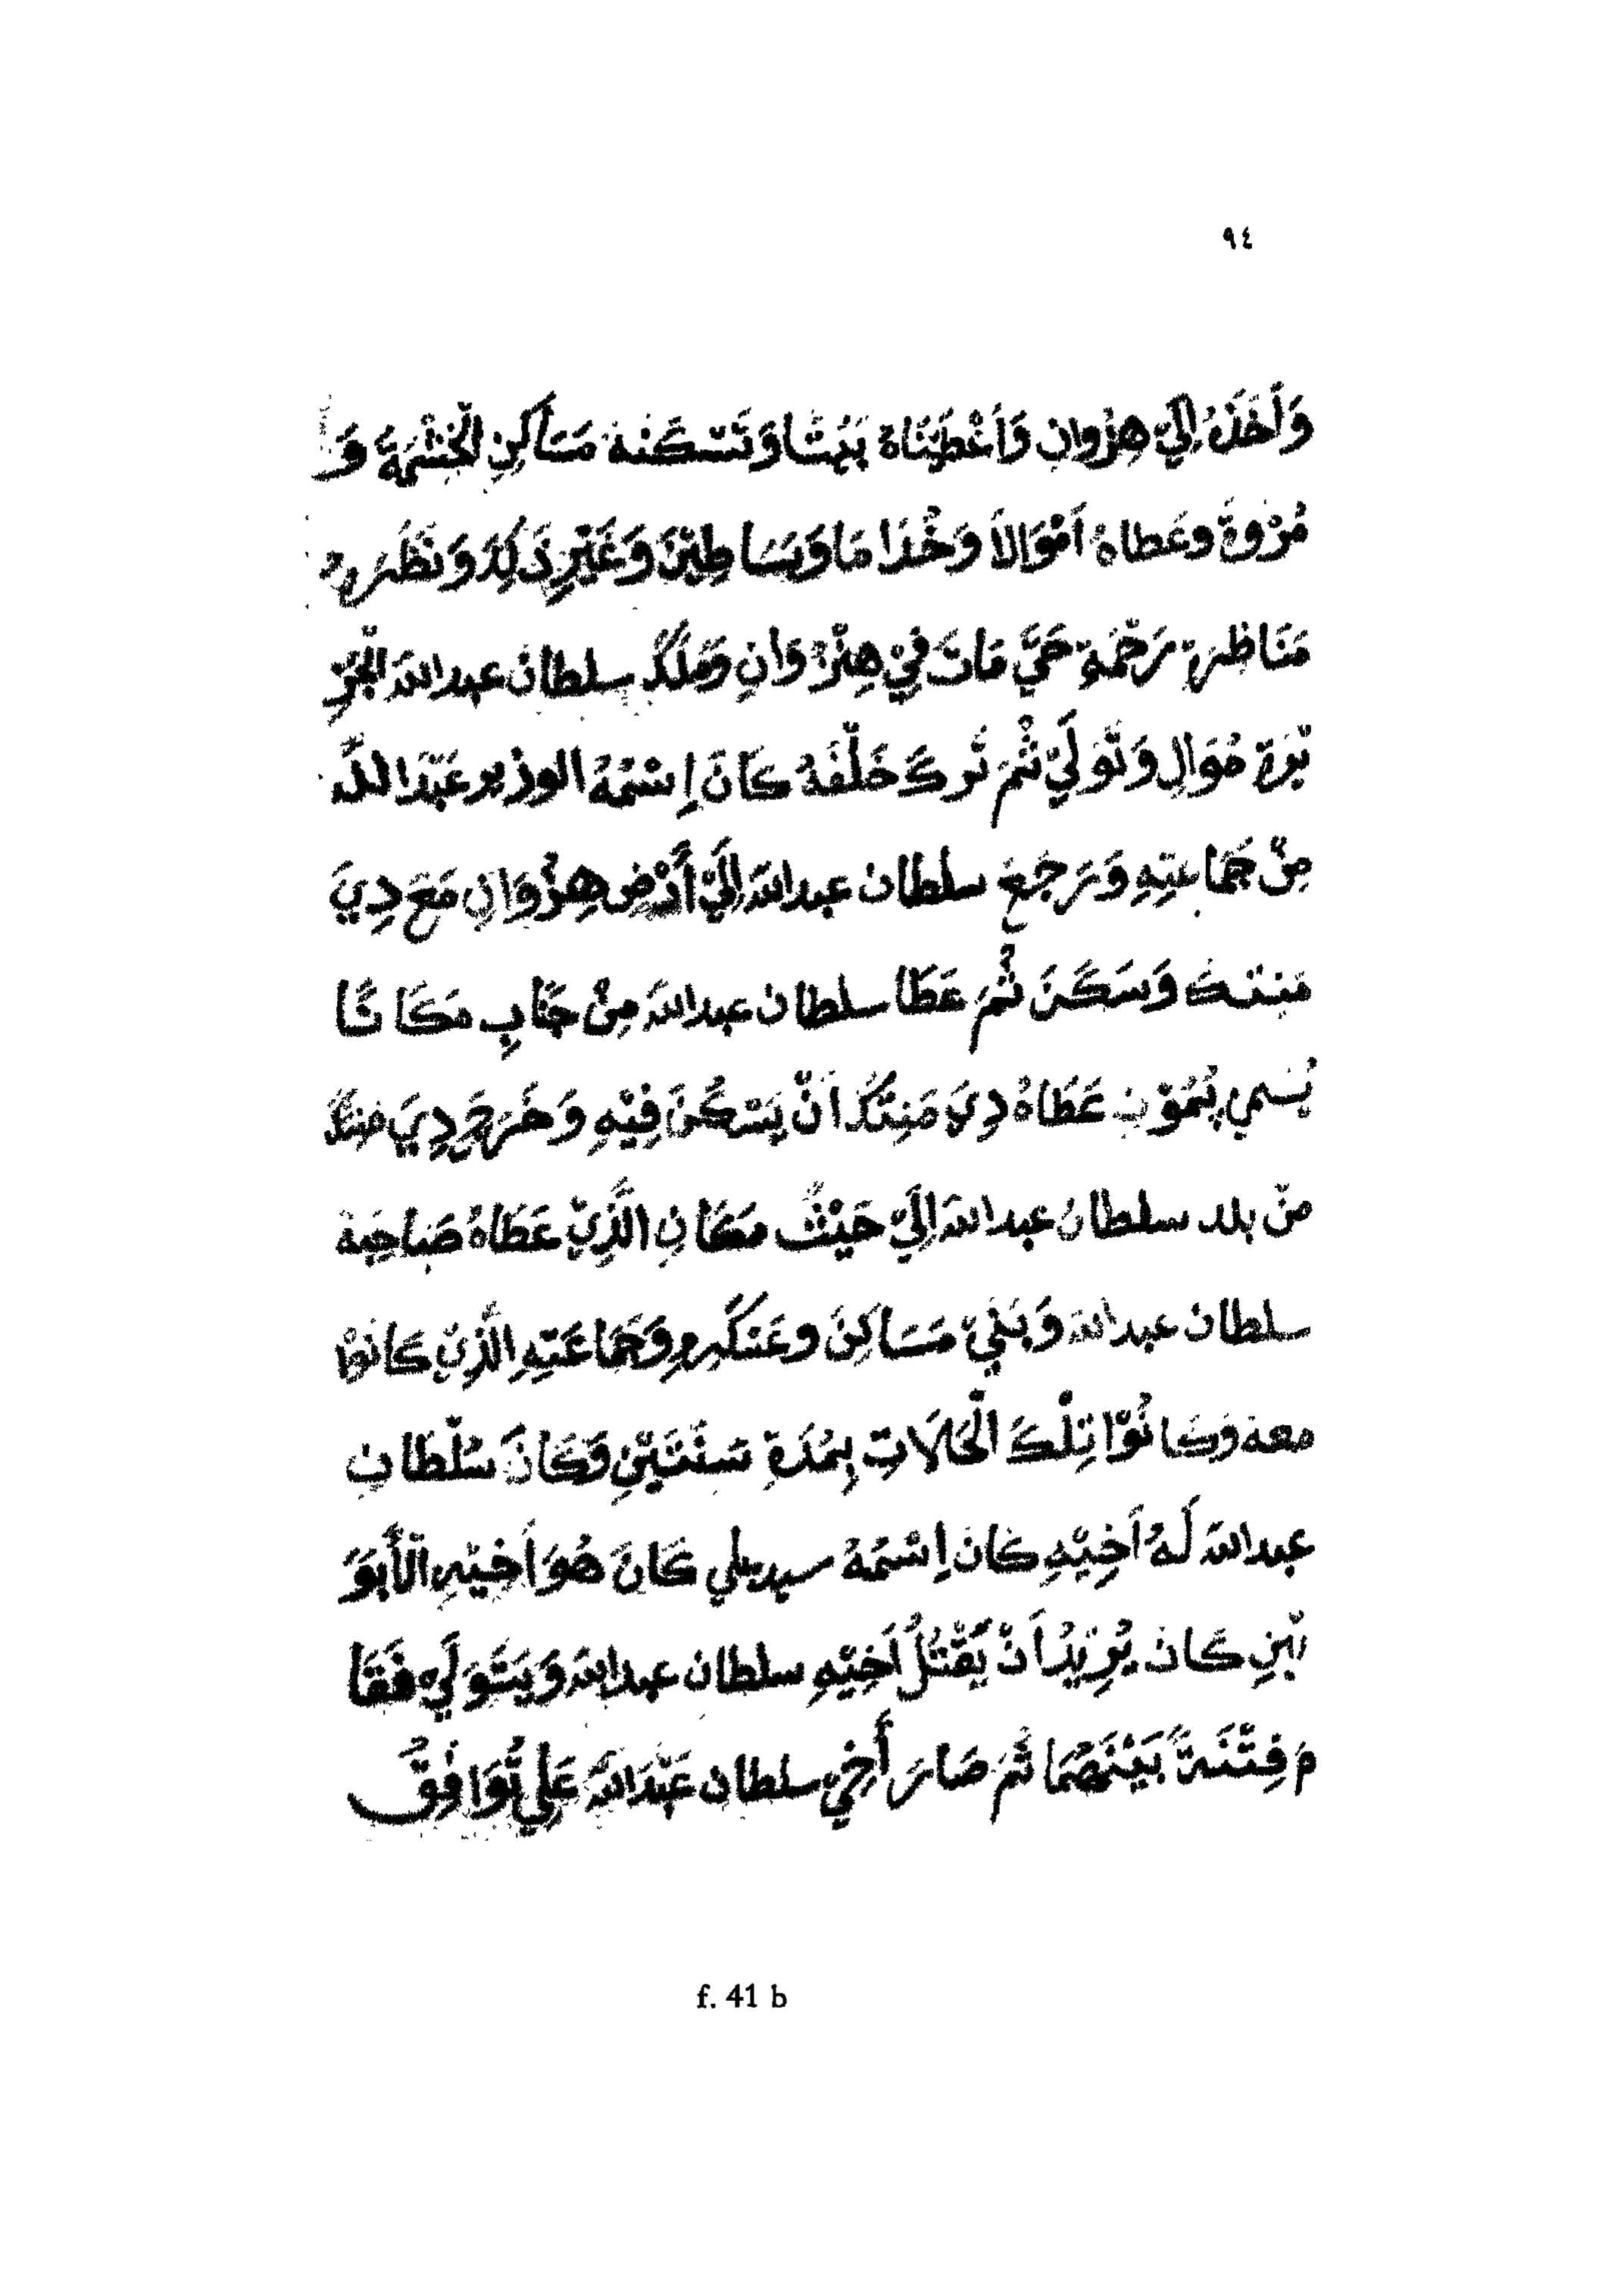 ٩٤
وَأَخَذَهُ إِلَيَّ هِنْزُوَانِ وَأَعْطَيْنَاهُ بَيْتًا وَتَسْكَنهُ مَسَاكِنِ الْحَشْمَةَ وَ
مُرْوَةً وعَطاهُ اَمْوَالاً وَخُدَا مَا وَبَسَاطِيْنَ وَغَيْرِ ذَلِكَ وَنَظَرَهُ
مَنَاظِرَة رَحْمَةٍ حَتَّي مَاتَ فِيْ هِنْزُوَانِ وَمَلَكَ سلطانُ عبد اللهَ الْجَزِ
يْرَة مُوَالِ وَتَوَلَيْ ثُمَ تَرَكَ خَلْفَهُ كَانَ إِسْمُهُ الوزير عَبْدَ اللَّه
مِنْ جَمَاعَتِهِ وَرَجَعَ سلطان عبد اللهَ اِلَيْ أَرْضِ هِنْزُوَانِ مَعَ دِيَ
مَنِتك وَسَكَنَ ثُمَ عَطَا سلطان عبد اللهَ مِنْ جَنَابِ مَكَانًا
يُسمي بُمُوْنِ عَطَاهُ دِيَ مَنِتَكُ اَنْ يَسْكُنَ فِيْهِ وَخَرَجَ دِيَ مَنتك
منْ بلد سلطانُ عبد اللهَ اِلَيْ حَيْثُ مَكَانِ الَّذِيْ عَطَاهُ صَاحِبهُ
سلطان عبد اللهَ وَبَنَيْ مَسَاكِنَ وعَسْكَرِهِ وَجَمَاعَتِهِ الَّذِيْ كَانُوْا
معهُ وَكَانُوْا تِلْكَ الْحَلَاتِ بِمُدَةِ سَنَتَيْنِ وَكَانَ سُلْطَانِ
عبد اللهَ لَهُ اَخِيْهِ كَانَ اِسْمُهُ سيد علي كَانَ هُوَ اَخِيْهِ الْأَبَوَ
يْنِ كَانَ يُرِيْدُ اَنْ يَقْتُلُ اَخِيْهِ سلطان عبد اللهَ وَيَتَوَلَيْ فَقَا
مَ فِتْنَةً بَيْنَهُمَا ثُمَ صَارَ أَخِيْ سلطان عَبْدَ اللَّهَ عَلِي تُوَافُقُ
f. 41 b